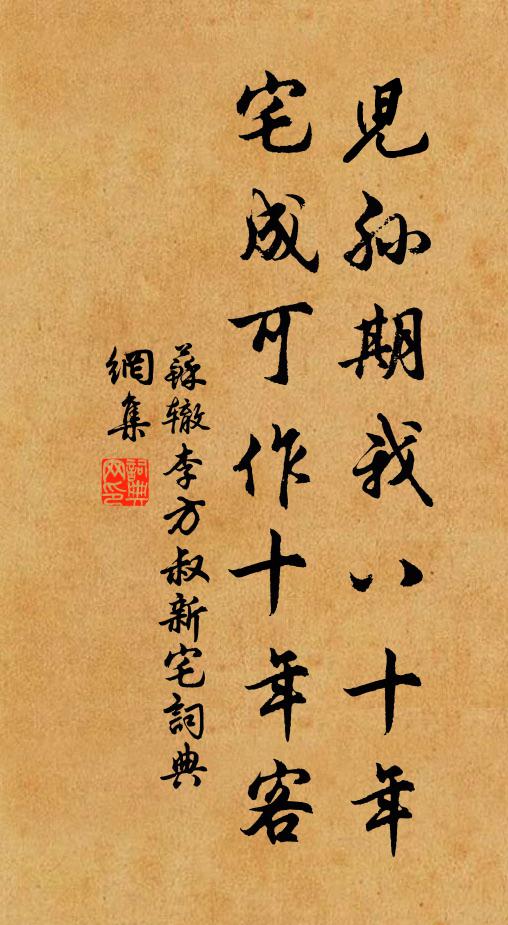 兒孫期我八十年
宅成可作十年客
蘇辙李方叔新宅詞典
網集
詞典网印